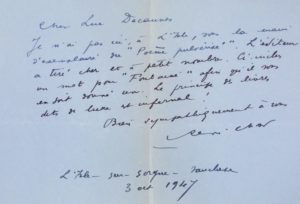 Cher Luc Decaunes
Je n'ai pas eu, à L'Isle, sous la main
d'exemplaire du "Poème pulvérisé". L'éditeur
a tiré cher et à petit nombre. Ci-inclus
un mot pour "Fontaine" afin qu'il vous
en soit donné un. Le principe de livres
dits de luxe est infernal!
Bien sympathiquement à vous
René Char
L'Isle-sur-Sorgue Vaucluse
3 oct 1947